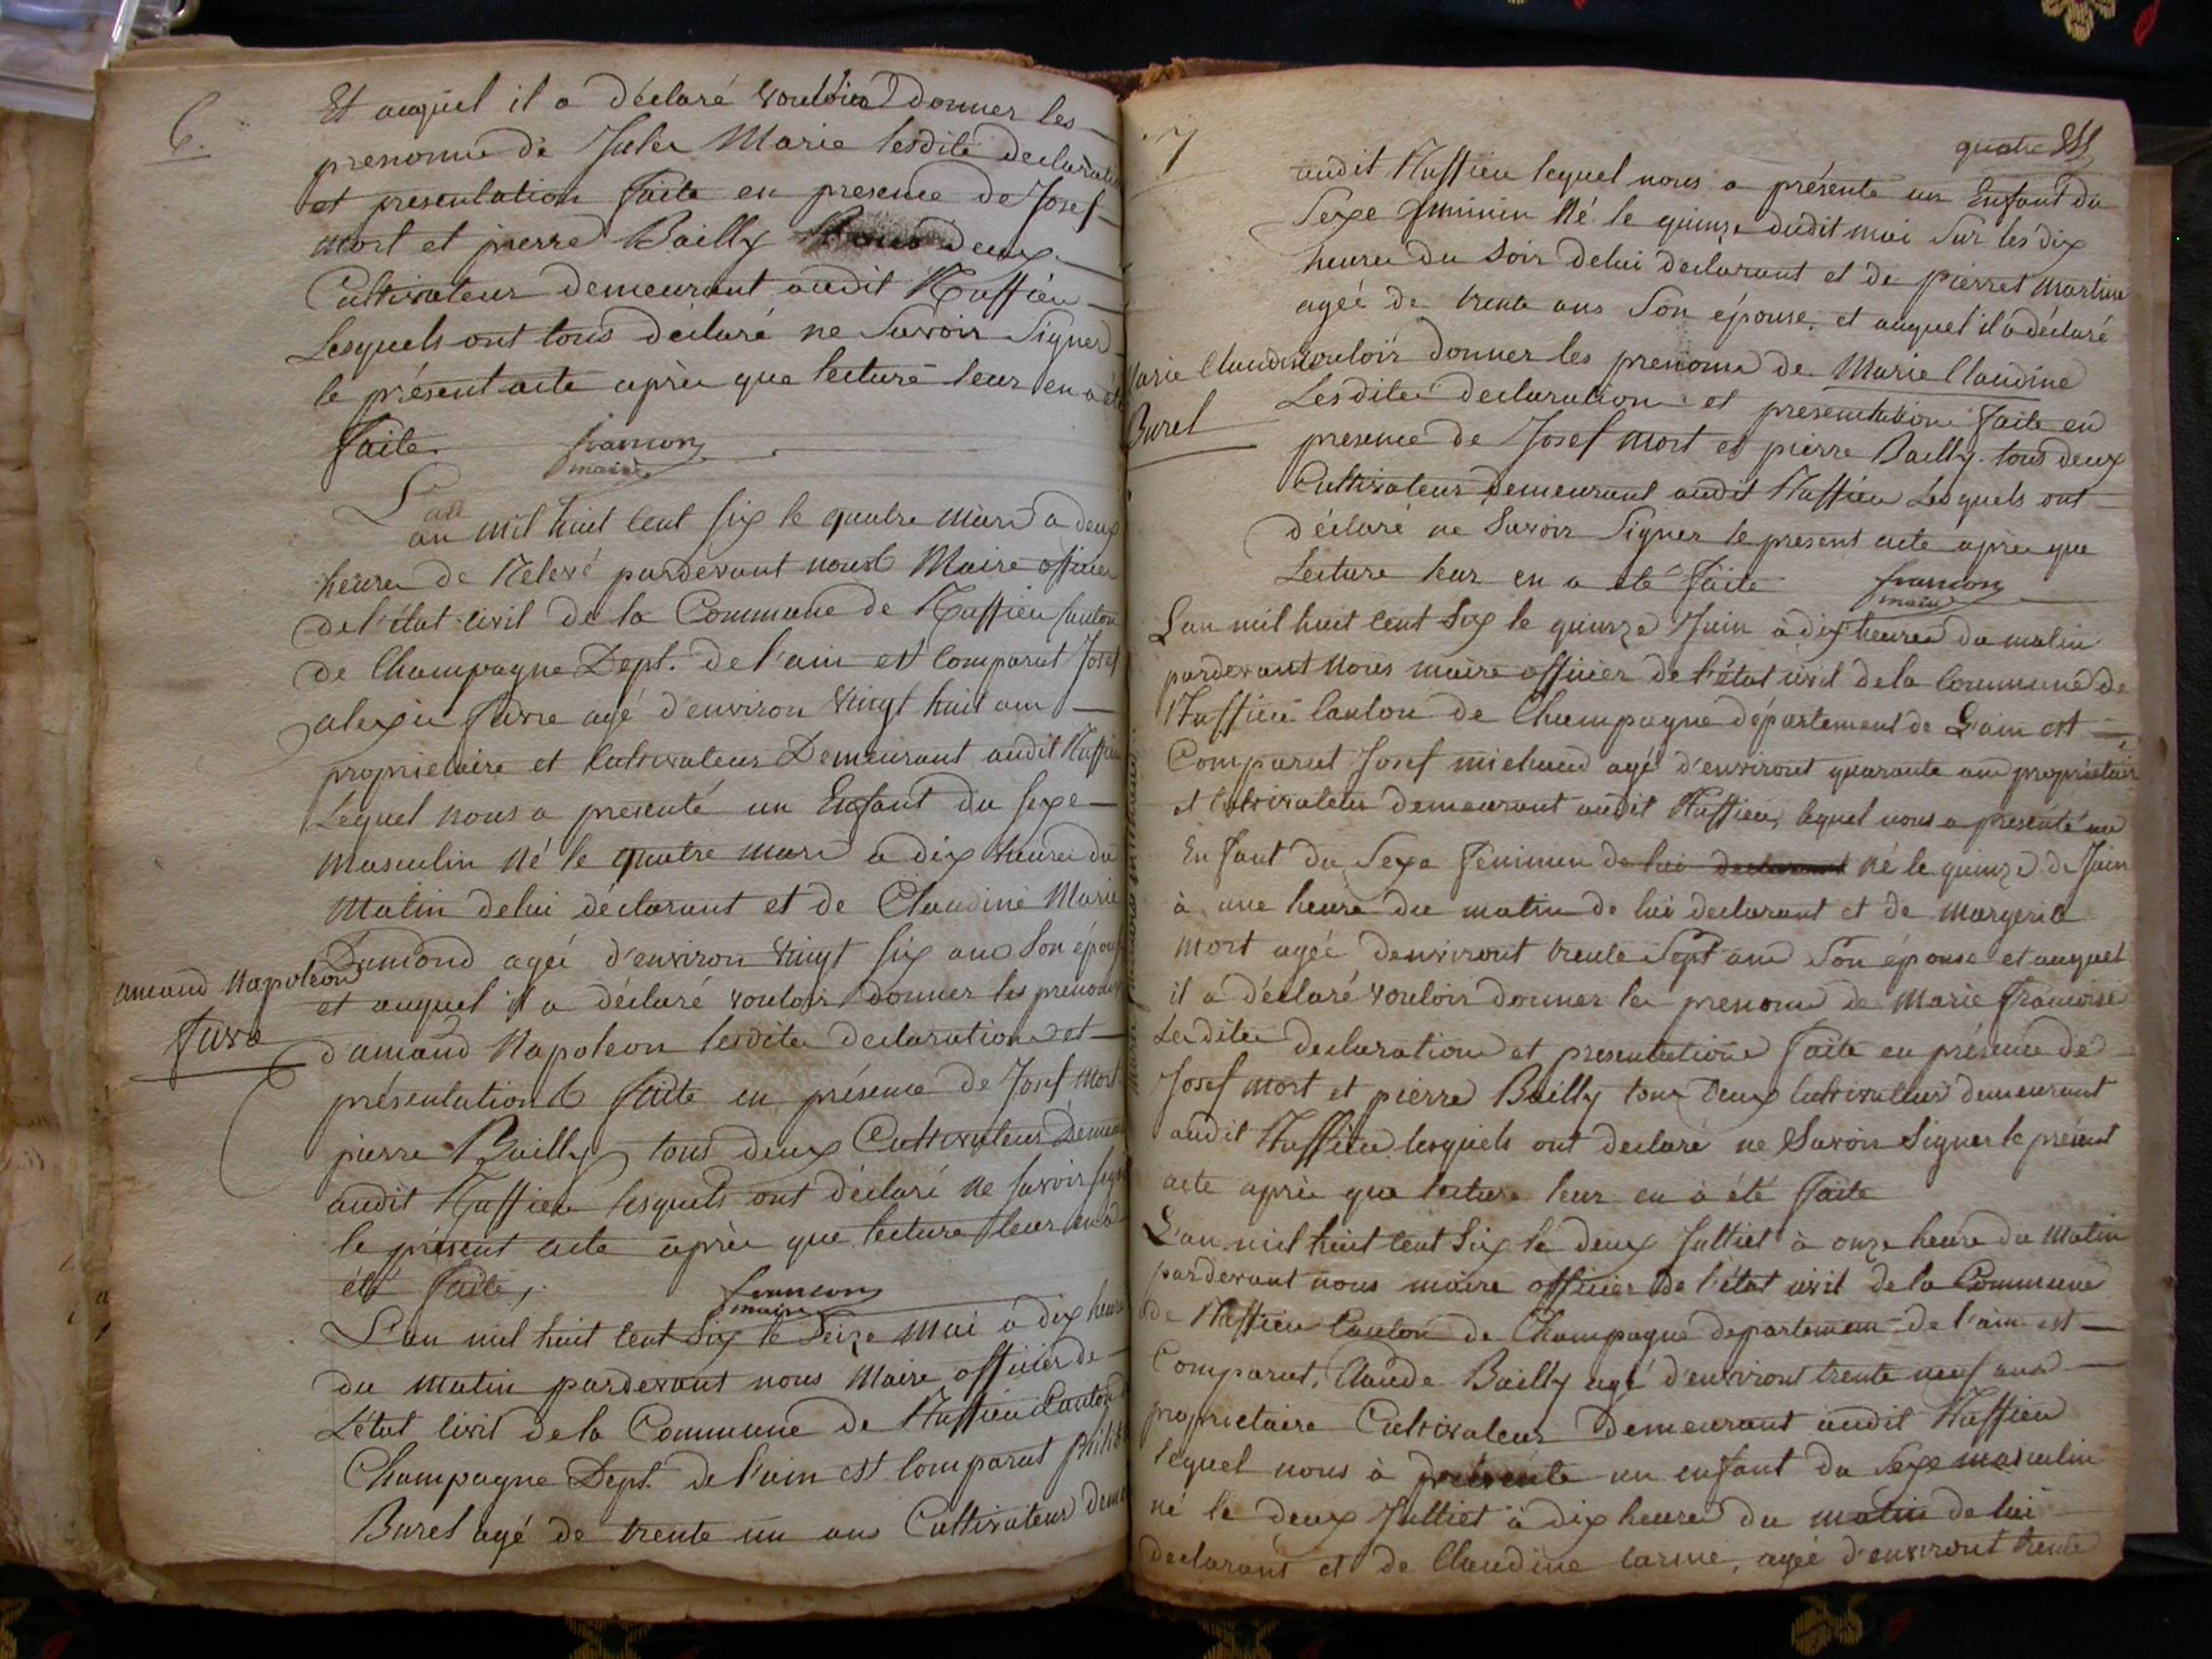 6.
Et auquel il a déclaré vouloir donner les
prenoms de Jules Marie lesdite declaration
et presentation faite en presence de Josef
mort et pierre Bailly tous deux
Cultivateur demeurant audit Ruffieu
Lesquels ont tous déclaré ne Savoir Signer
le présent acte après que lecture leur en a été
faite. francon
maire
L'an mil huit cent six le quatre mars a deux
heures de Relevé pardevant nous Maire officier
de l'état civil de la Commune de Ruffieu Canton
de Champagne Dept. de l'ain est comparut Josef
alexis favre agé d'environ vingt huit ans
proprietaire et Cultivateur Demeurant audit Ruffieu
Lequel nous a presenté un Enfant du sexe
masculin Né le quatre mars a dix heures du
Matin de lui déclarant et de Claudine Marie
Dumond agée d'environ vingt six ans Son épouse
amand Napoleon
favre
et auquel il a déclaré vouloir donner les prenoms
d'amand Napoleon lesdites declaration et
présentation faite en présence de Josef Mort
pierre Bailly tous deux Cultivateur Demeurant
audit Ruffieu lesquels ont déclaré ne savoir signer
le présent acte après que lecture leur en a
été faite, francon
maire
L'an mil huit cent Six le Seize Mai à dix heures
du matin pardevant nous Maire officier de
L'état Civil de la Commune de Ruffieu Canton
Champagne Dept. de l'ain est comparut
Buret agé de trente un ans Cultivateur demeurant
7
quatre
audit Ruffieu lequel nous a présenté un Enfant du
Sexe feminin Né le quinze dudit mai Sur les dix
heures du Soir de lui declarant et de pierret martine
agée de trente ans Son épouse, et auquel il a déclaré
Marie Claudine
Buret
vouloir donner les prenoms de Marie Claudine
Lesdites declaration et presentation faite en
presence de Josef mort et pierre Bailly tous deux
Cultivateur demeurant audit Ruffieu Lesquels ont
déclaré ne Savoir Signer le present acte après que
Lecture leur en a été faite francon
maire
L'an mil huit cent Six le quinze Juin à dix heures du matin
pardevant Nous maire officier de l'état civil de la Commune de
Ruffieu Canton de Champagne département de L'ain est
Comparut Josef michaud agé d'environt quarante ans propriétaire
et Cultivateur demeurant audit Ruffieu, lequel nous a presenté un
Enfant du Sexe feminin de lui declarant Né le quinze de Juin
à une heure du matin de lui declarant et de margerite
mort agée d'environt trente Sept ans Son épouse et auquel
il a déclaré vouloir donner les prenoms de marie francoise
Lesdites declaration et presentation faite en présence de
Josef mort et pierre Bailly tous deux Cultivateur demeurant
audit Ruffieu lesquels ont declaré ne Savoir Signer le présent
acte après que lecture leur en à été faite
L'an mil huit cent Six le deux Julliet à onze heure du Matin
pardevant nous maire officier de l'état civil de la Commune
de Ruffieu Canton de Champagne departement de l'ain est
Comparut, Claude Bailly agé d'environt trente neuf ans
proprietaire Cultivateur Demeurant audit Ruffieu
lequel nous à présenté un enfant du Sexe masculin
né le deux Julliet à dix heures du matin de lui
declarant et de Claudine carme, agée d'environt trente